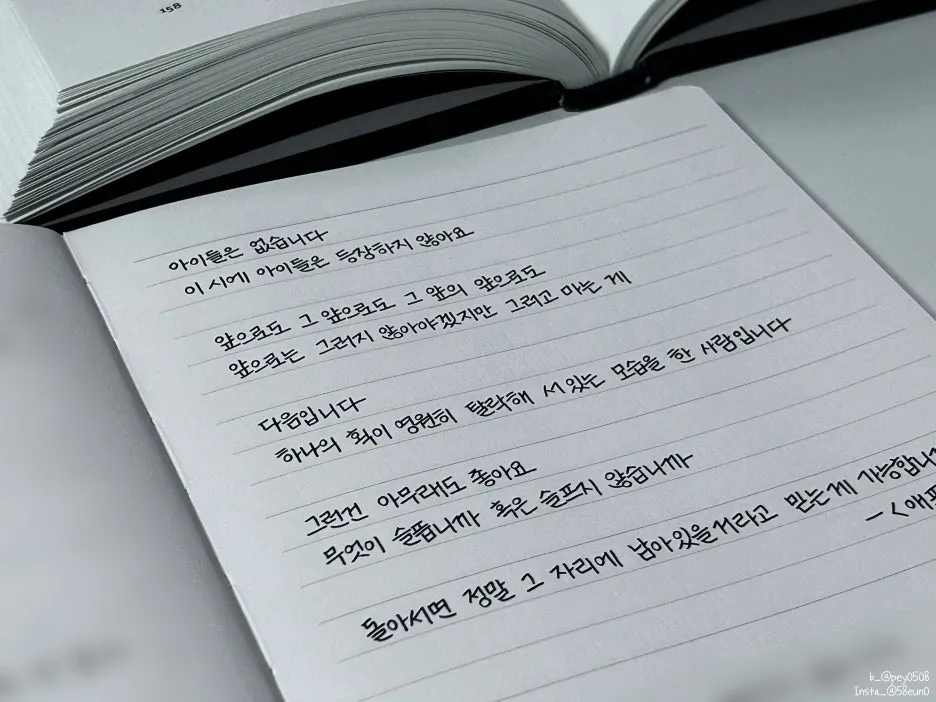 158
아이들은 없습니다
이 시에 아이들은 등장하지 않아요
앞으로도 그 앞으로도 그 앞의 앞으로도
앞으로는 그러지 않아야겠지만 그러고 마는 게
다음입니다
하나의 획이 영원히 탈락해 서 있는 모습을 한 사람입니다
그런건 아무래도 좋아요
무엇이 슬픕니까 혹은 슬프지 않습니까
돌아서면 정말 그 자리에 남아있을거라고 믿는게 가능합니
- <애프
b_@pey0508
Insta_@58eun0